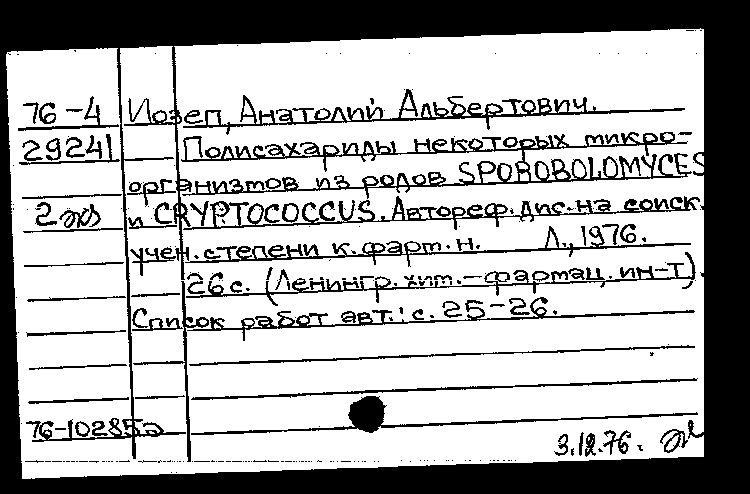 76-4 Иозеп, Анатолий Альбертович.
29241 Полисахариды некоторых микро-
организмов из родов SPOROBOLOMYCES
2 экз и CRYPTOCOCCUS. Автореф. дис. на соиск.
учен. степени к. фарм. н. Л., 1976.
26 с. (Ленингр. хим.-фармац. ин-т).
Список работ авт.: с. 25-26.
76-10285
3.12.76.